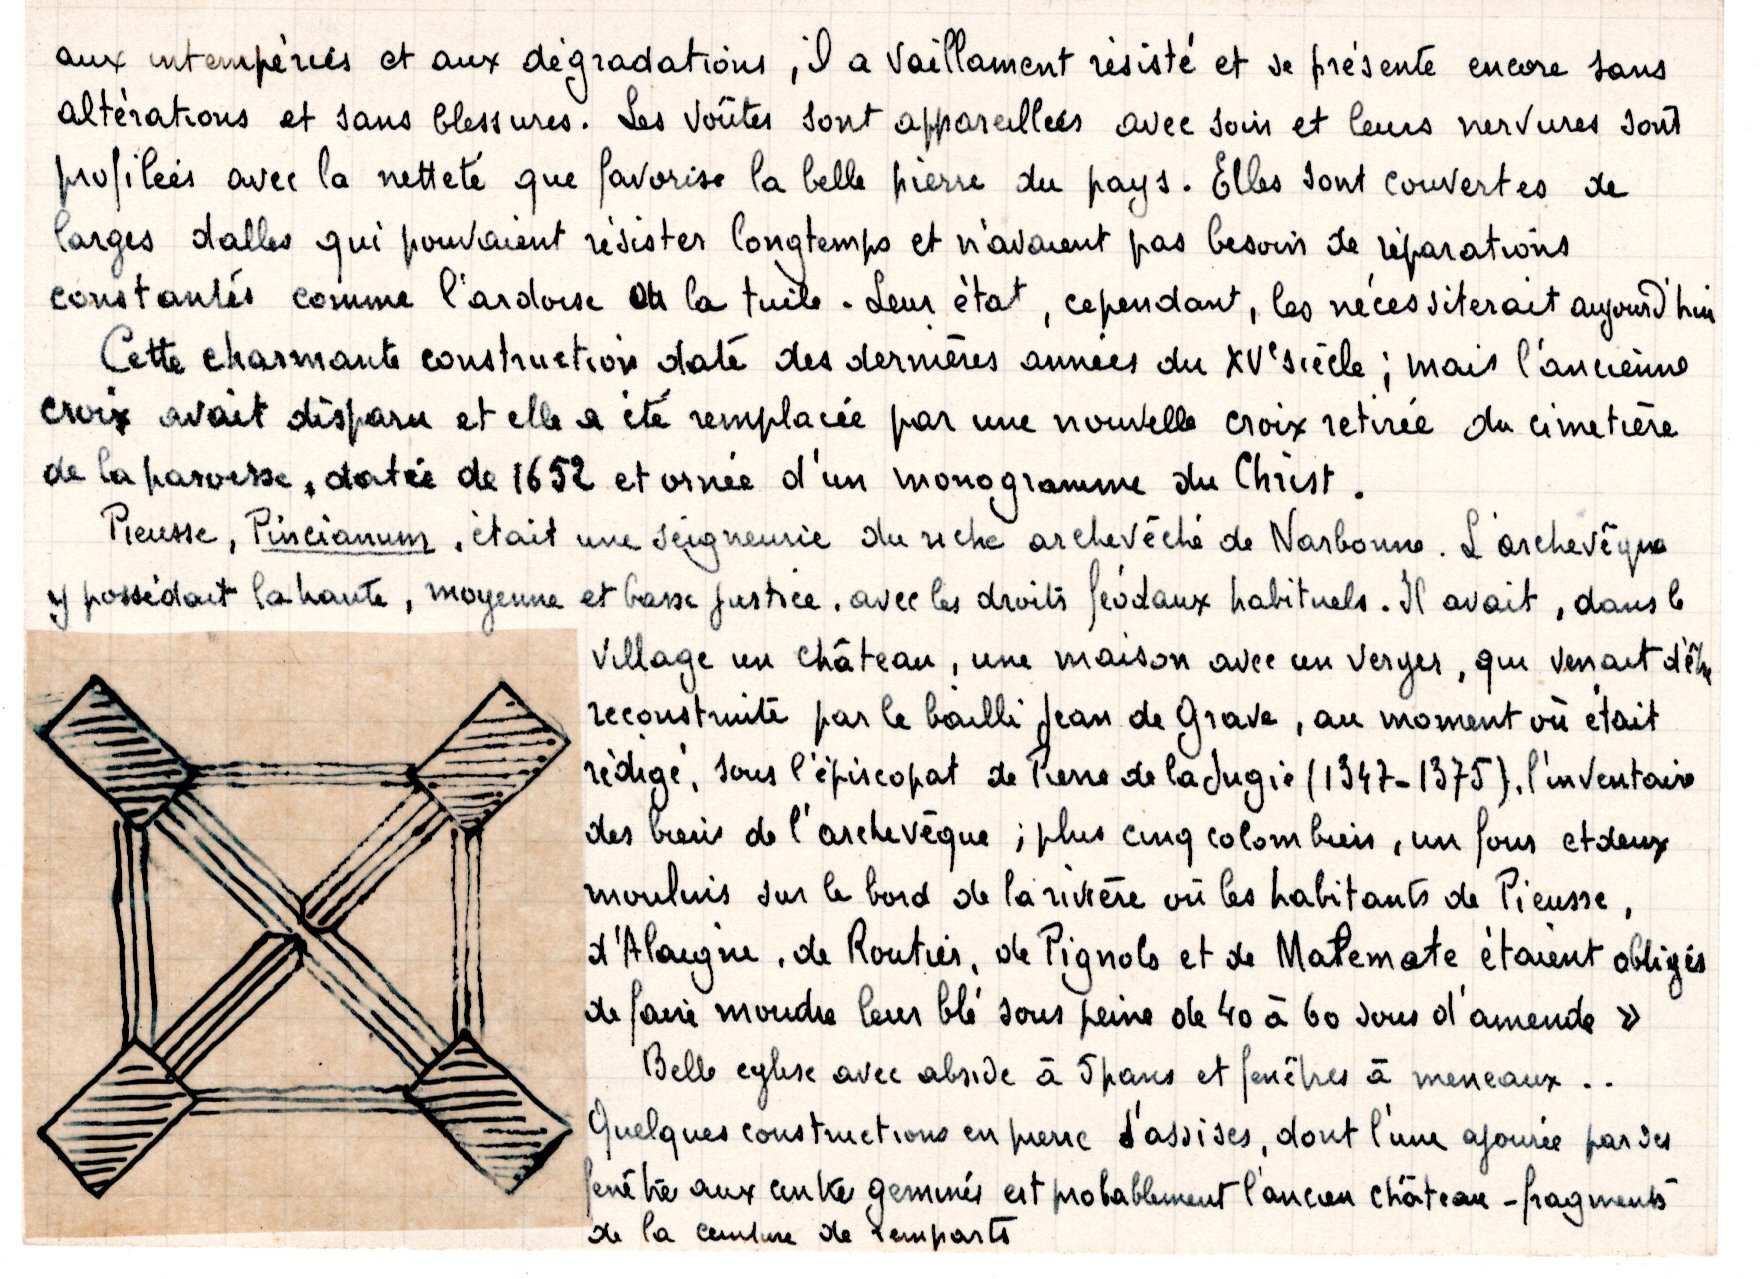 aux intempéries et aux dégradations, il a vaillament résisté et se présente encore sans
altérations et sans blessures. Les voûtes sont appareillées avec soin et leurs nervures sont
profilées avec la netteté que favorise la belle pierre du pays. Elles sont couvertes de
larges dalles qui pouvaient résister longtemps et n'avaient pas besoin de réparations
constantes comme l'ardoise ou la tuile. Leur état, cependant, les nécessiterait aujourd'hui
Cette charmante construction date des dernières années du XVe siècle ; mais l'ancienne
croix avait disparu et elle a été remplacée par une nouvelle croix retirée du cimetière
de la paroisse, datée de 1652 et ornée d'un monogramme du Christ.
Pieusse, Pincianum, était une seigneurie du riche archevêché de Narbonne. L'archevêque
y possédait la haute, moyenne et basse justice, avec les droits féodaux habituels. Il avait, dans le
village un château, une maison avec un verger, qui venait d'être
reconstruite par le bailli Jean de Grave, au moment où était
rédigé, sous l'épiscopat de Pierre de la Jugie (1347-1375), l'inventaire
des biens de l'archevêque ; plus cinq colombiers, un four et deux
moulins sur le bord de la rivière où les habitants de Pieusse,
d'Alaigne, de Routier, de Pignols et de Malemate étaient obligés
de faire moudre leur blé sous peine de 40 à 60 sous d'amende »
Belle eglise avec abside à 5 pans et fenêtres à meneaux ..
Quelques constructions en pierre d'assises, dont l'une ajourée par des
fenêtre aux centre geminés est probablement l'ancien château - fragments
de la ceinture de remparts